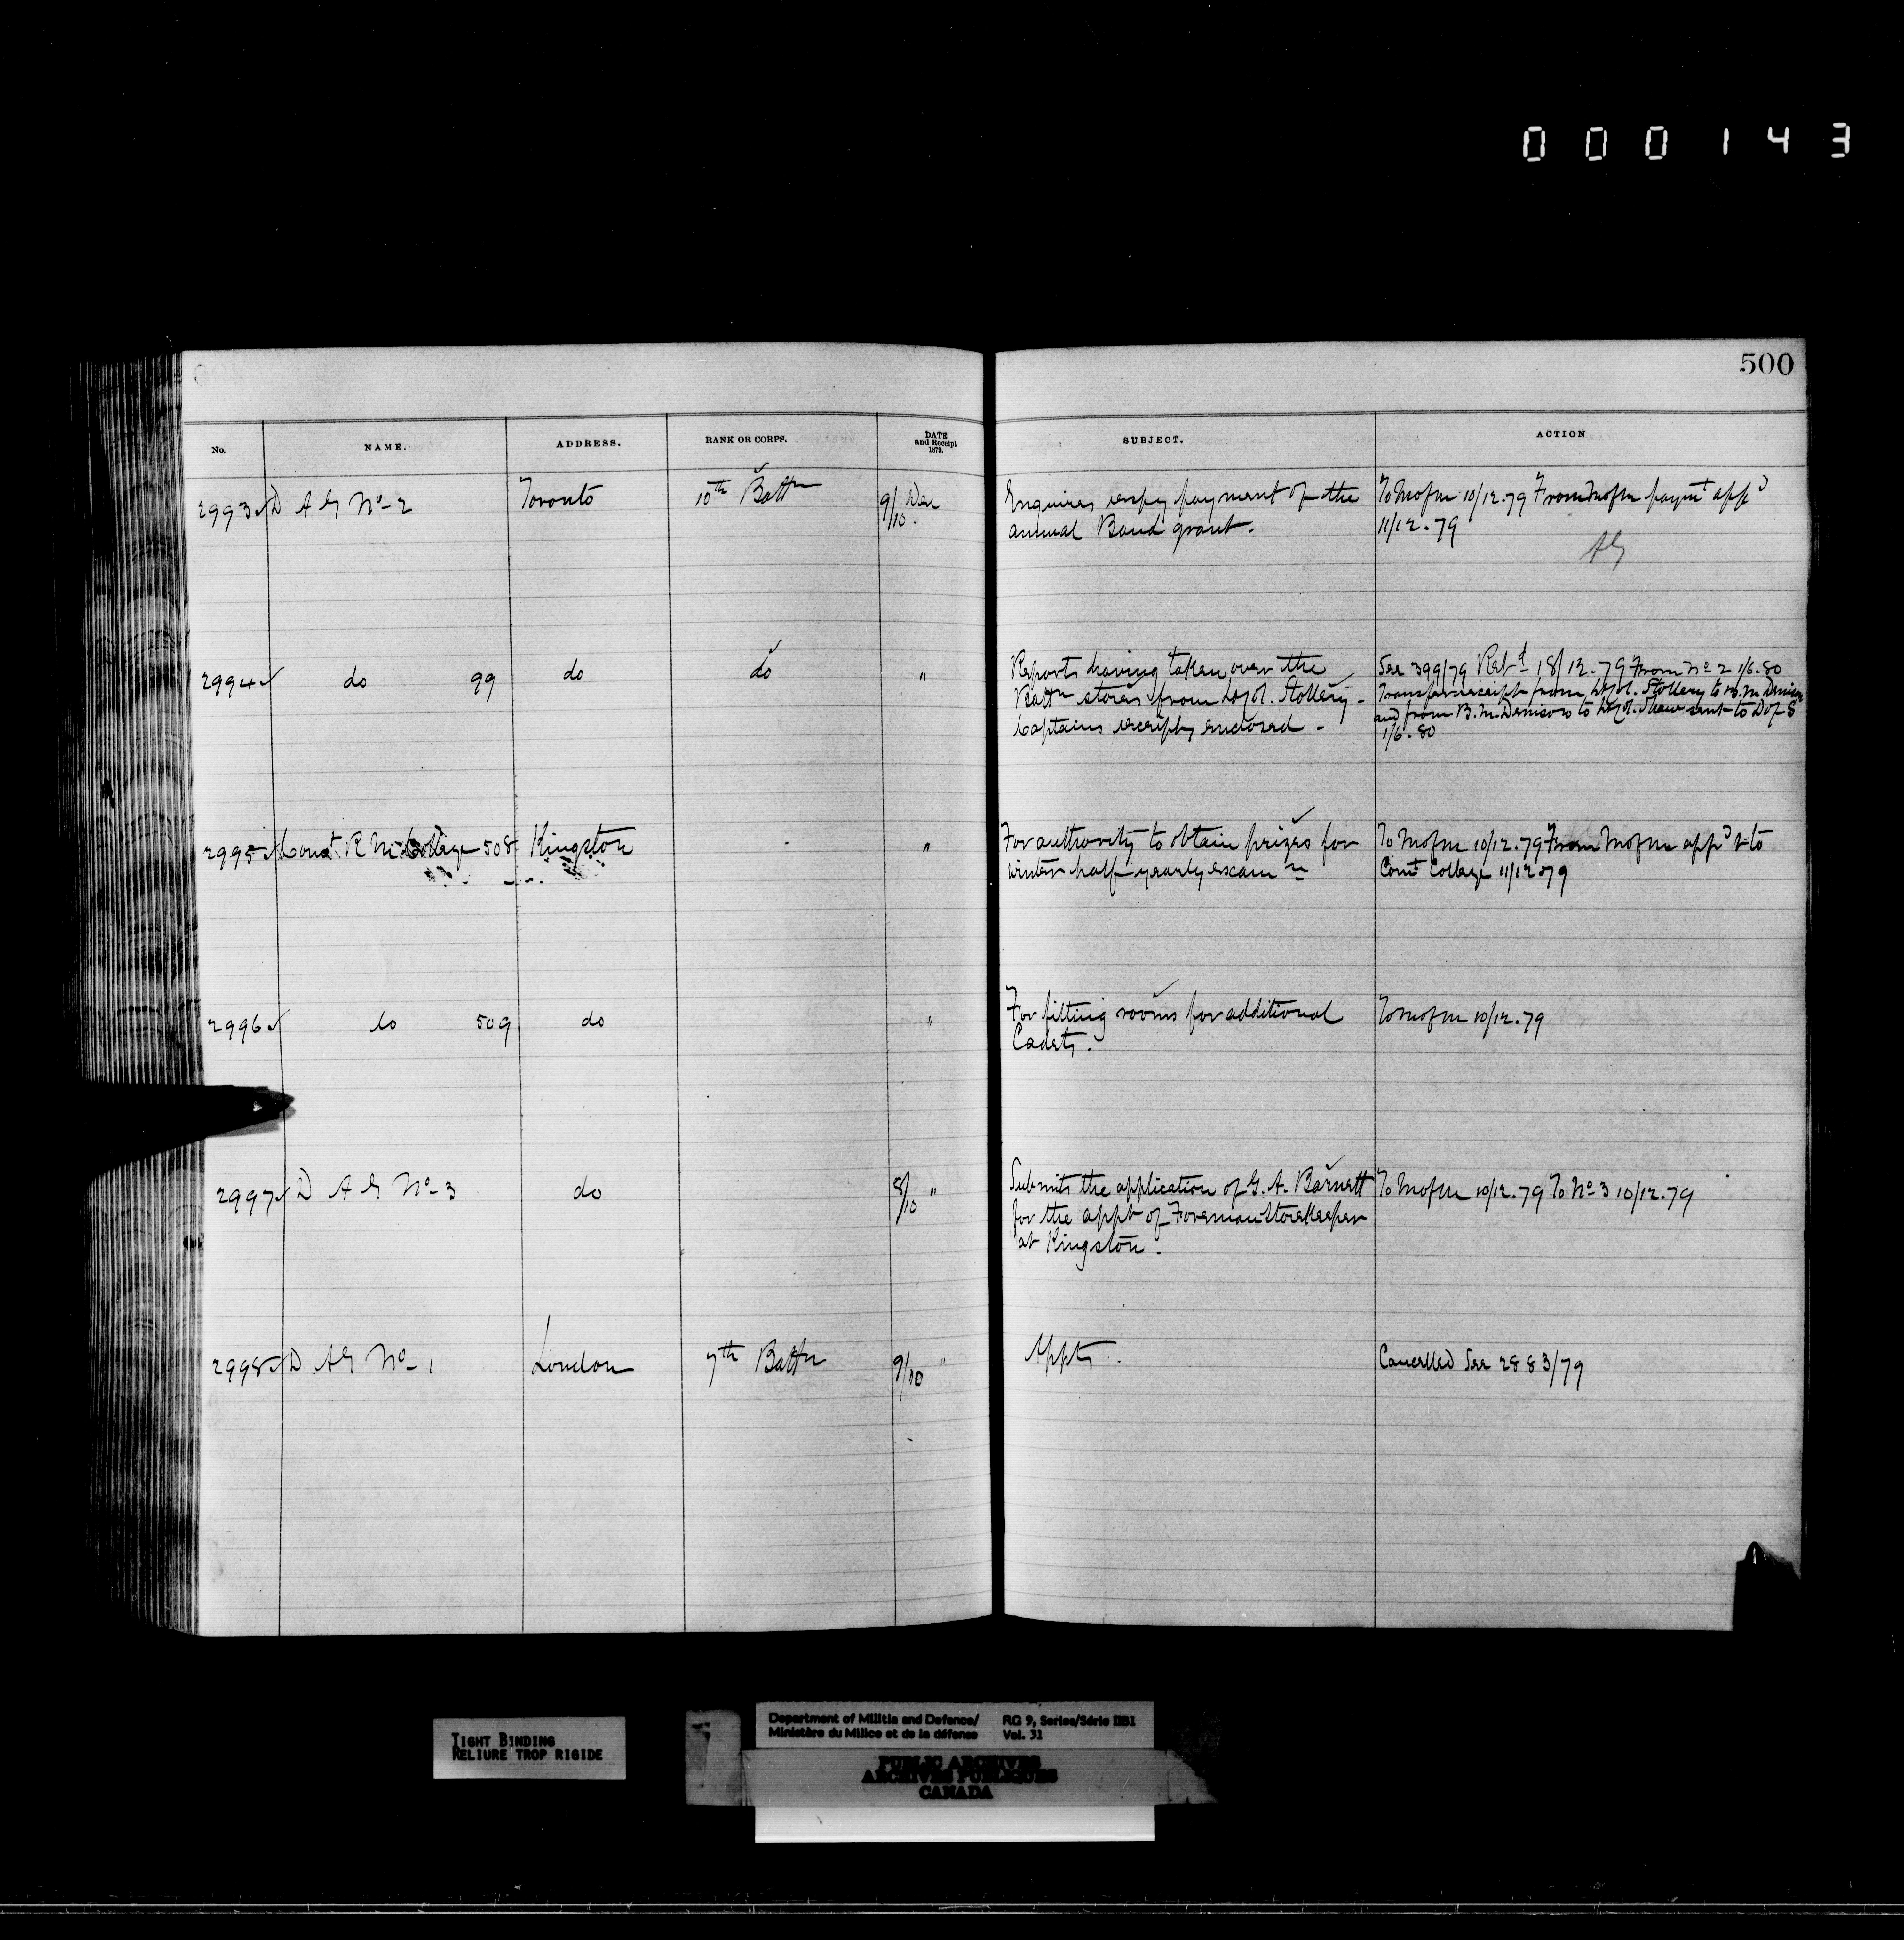 000143
500
No. NAME. ADDRESS. RANK OR CORPS. DATE and Receipt 1879. SUBJECT. ACTION
2993 D A G No. 2 Toronto 10th Battn 9/10 Dec Enquires respg payment of the To M of M 10/12.79 From M of M paymt appd
annual Band grant. 11/12.79
AG
2994 do 99 do do " Reports having taken over the See 399/79 Retd 18/12.79 From No 2 1/6.80
Battn stores from Lt Col. Stollery - Transfer receipt from Lt Col. Stollery to B.M. Denison
Captains receipts enclosed - and from B.M. Denison to Lt Col. Shaw sent to D of S
1/6.80
2995 Comt R M College 508 Kingston " For authority to obtain prizes for To M of M 10/12.79 From M of M appd & to
winter half yearly examn Comt College 11/12.79
2996 do 509 do " For fitting rooms for additional To M of M 10/12.79
Cadets.
2997 D A G No. 3 do 8/10 " Submits the application of G. A. Barnett To M of M 10/12.79 To No 3 10/12.79
for the appt of Foreman Storekeeper
at Kingston.
2998 D A G No. 1 London 7th Battn 9/10 " Appts. Cancelled See 2883/79
TIGHT BINDING
RELIURE TROP RIGIDE
Department of Militia and Defence/ RG 9, Series/Série IIB1
Ministère du Milice et de la défense Vol. 31
PUBLIC ARCHIVES
ARCHIVES PUBLIQUES
CANADA